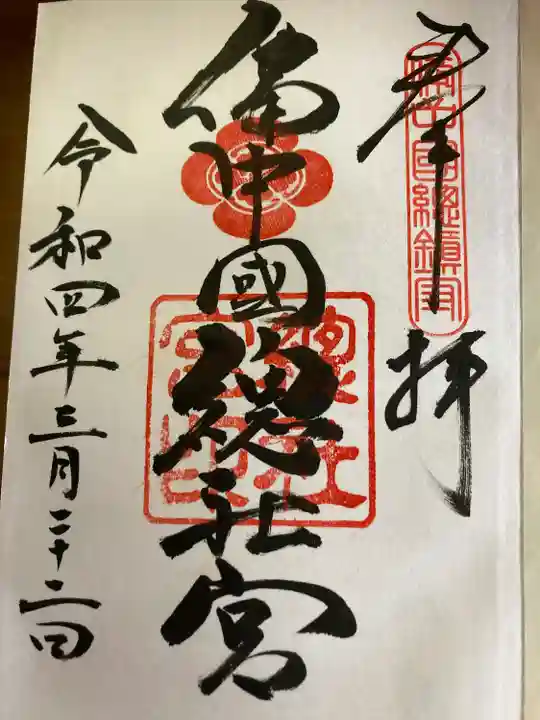 奉拝
備中國總鎮守
備中國總社宮
總社宮印
令和四年三月二十二日